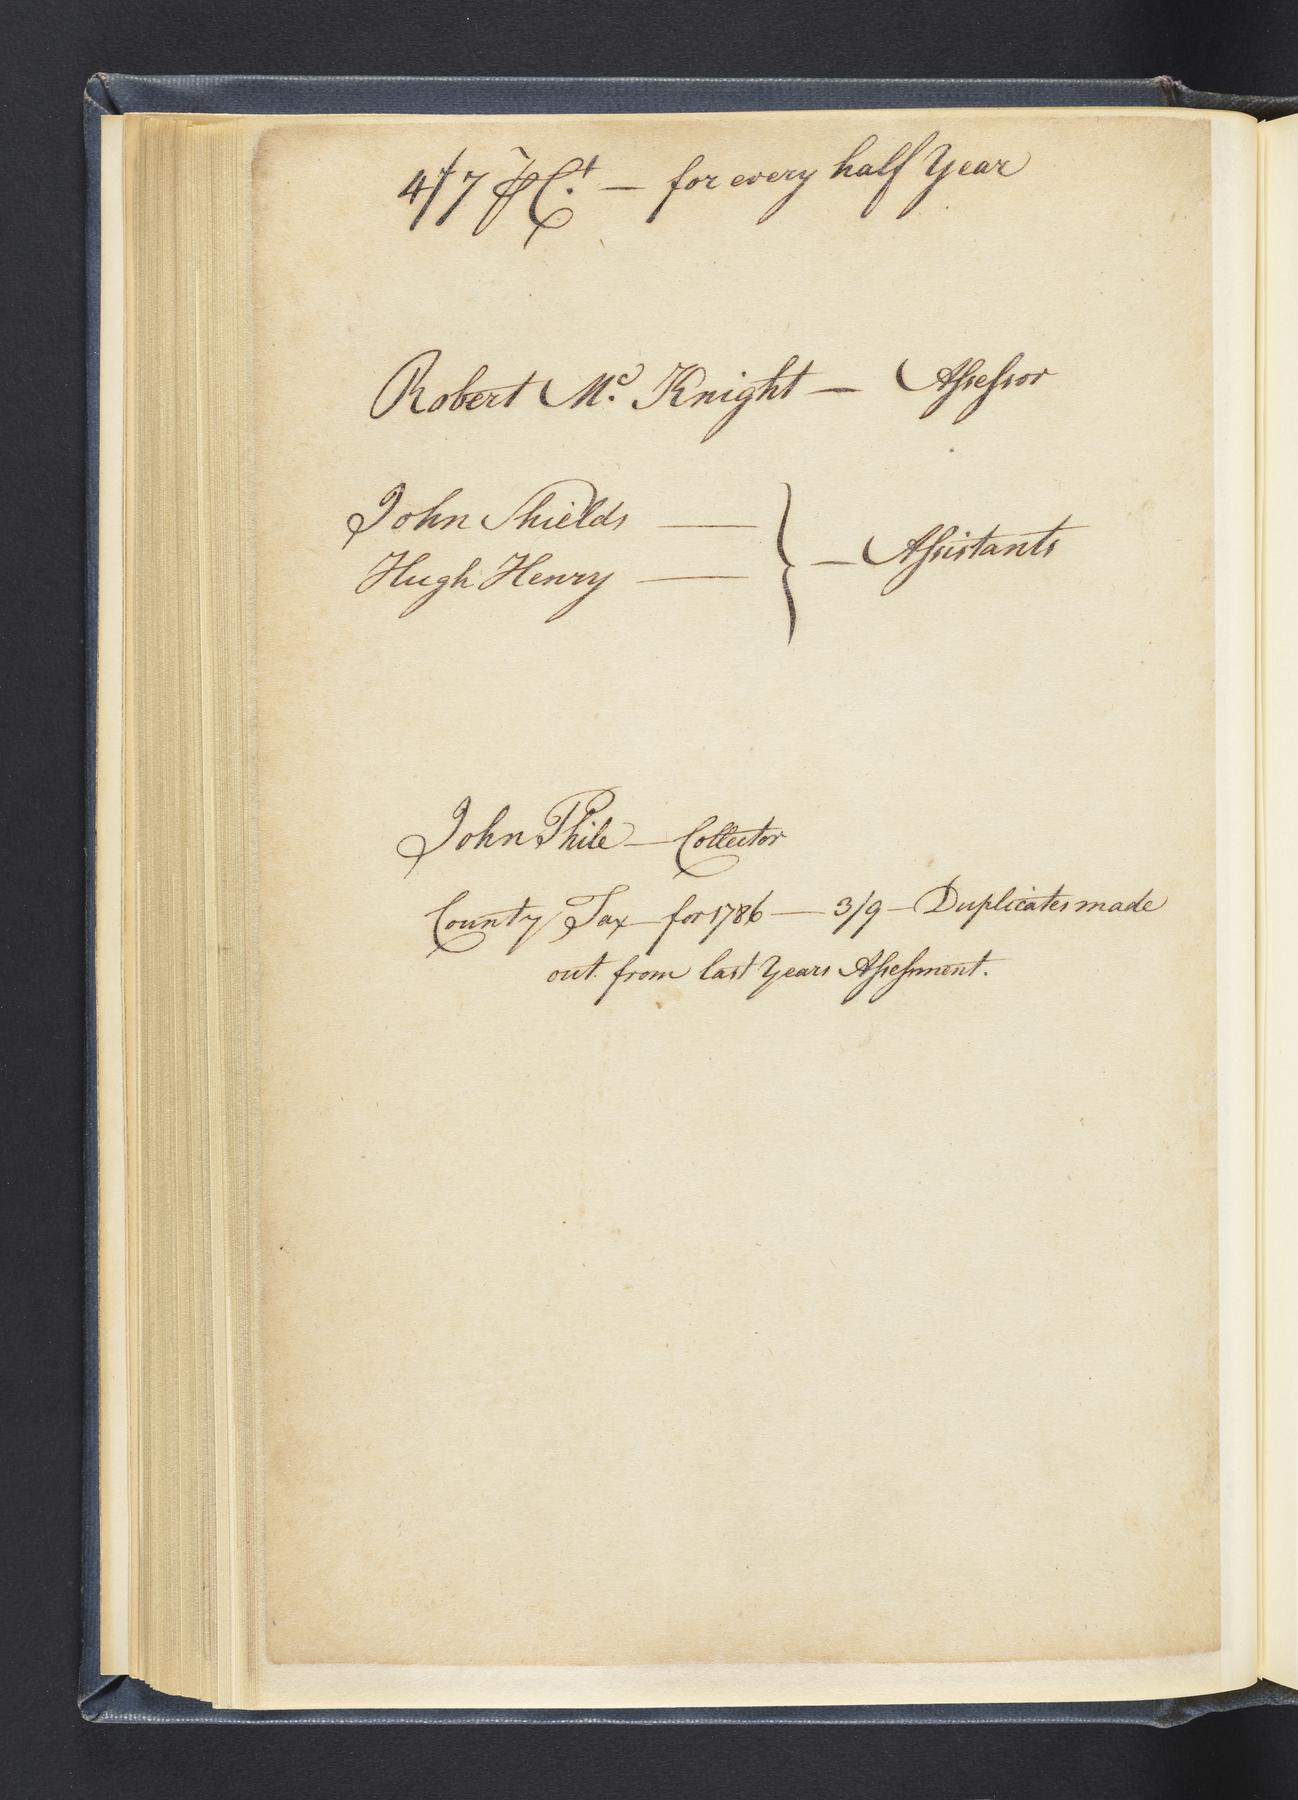 4/7 ⅌ C.t — for every half Year
Robert Mc. Knight — Assessor
John Shields —
Hugh Henry — } — Assistants
John Phile — Collector
County Tax — for 1786 — 3/9 — Duplicates made
out from last Years Assessment.